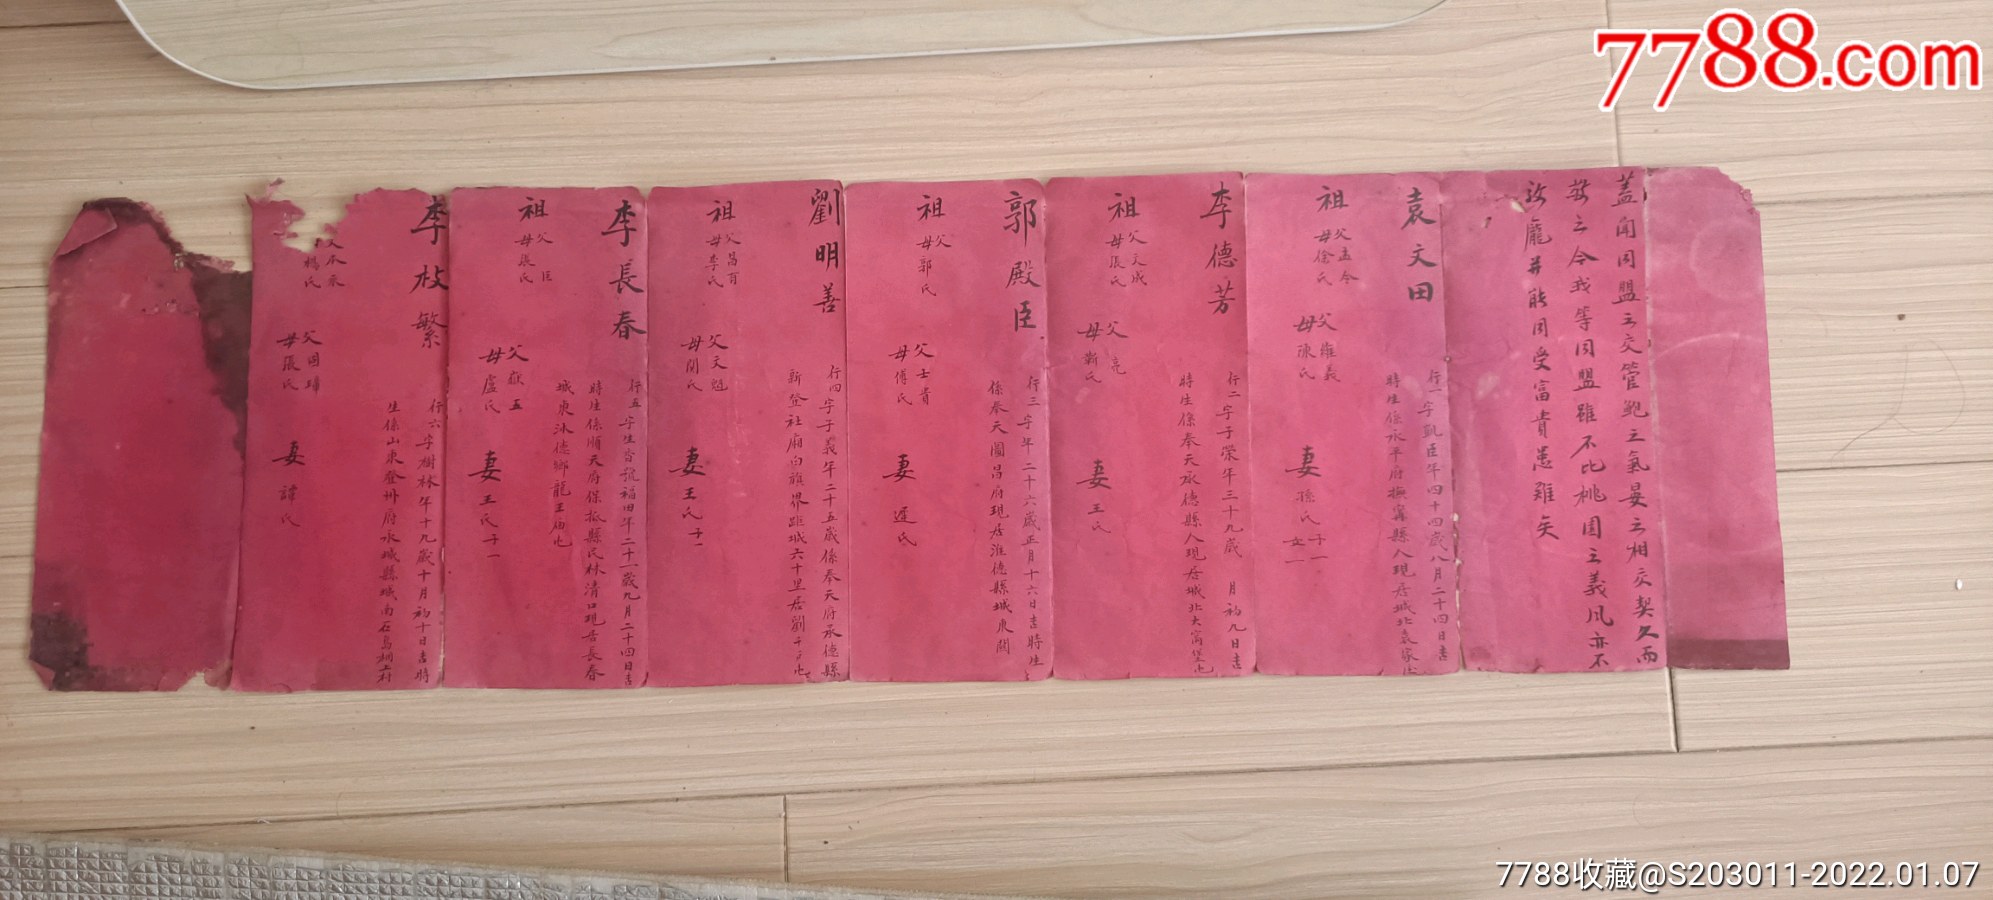 7788.com
蓋聞同盟之交管鮑之氣晏之相交契久而
敬之今我等同盟雖不比桃園之義風亦不
致龐并能同受富貴患難矣
袁文田
行一字凱臣年四十四歲八月二十四日吉
時生係永平府撫寧縣人現居城北袁家
祖
父孟令
母徐氏
父維義
母陳氏
妻孫氏子一
女一
李德芳
行二字子榮年三十九歲 月初九日吉
時生係奉天承德縣人現居城北大窩堡屯
祖
父文成
母張氏
父亮
母靳氏
妻王氏
郭殿臣
行三字年二十六歲正月十六日吉時生
係奉天圖昌府現居淮德縣城東關
祖
父
母郭氏
父士貴
母傅氏
妻遲氏
劉明善
行四字子義年二十五歲係奉天府承德縣
新登社廂白旗界距城六十里居劉千戶屯
祖
父昌百
母李氏
父文魁
母關氏
妻王氏子一
李長春
行五字生香號福田年二十一歲九月二十四日吉
時生係順天府保抵縣民林清口現居長春
城東沐德鄉龍王廟屯
祖
父臣
母張氏
父嶽五
母盧氏
妻王氏子一
李枝繁
行六字樹林年十九歲十月初十日吉時
生係山東登州府水城縣城南石島村
父
楊氏
父國
母張氏
妻譚氏
7788收藏@S203011-2022.01.07